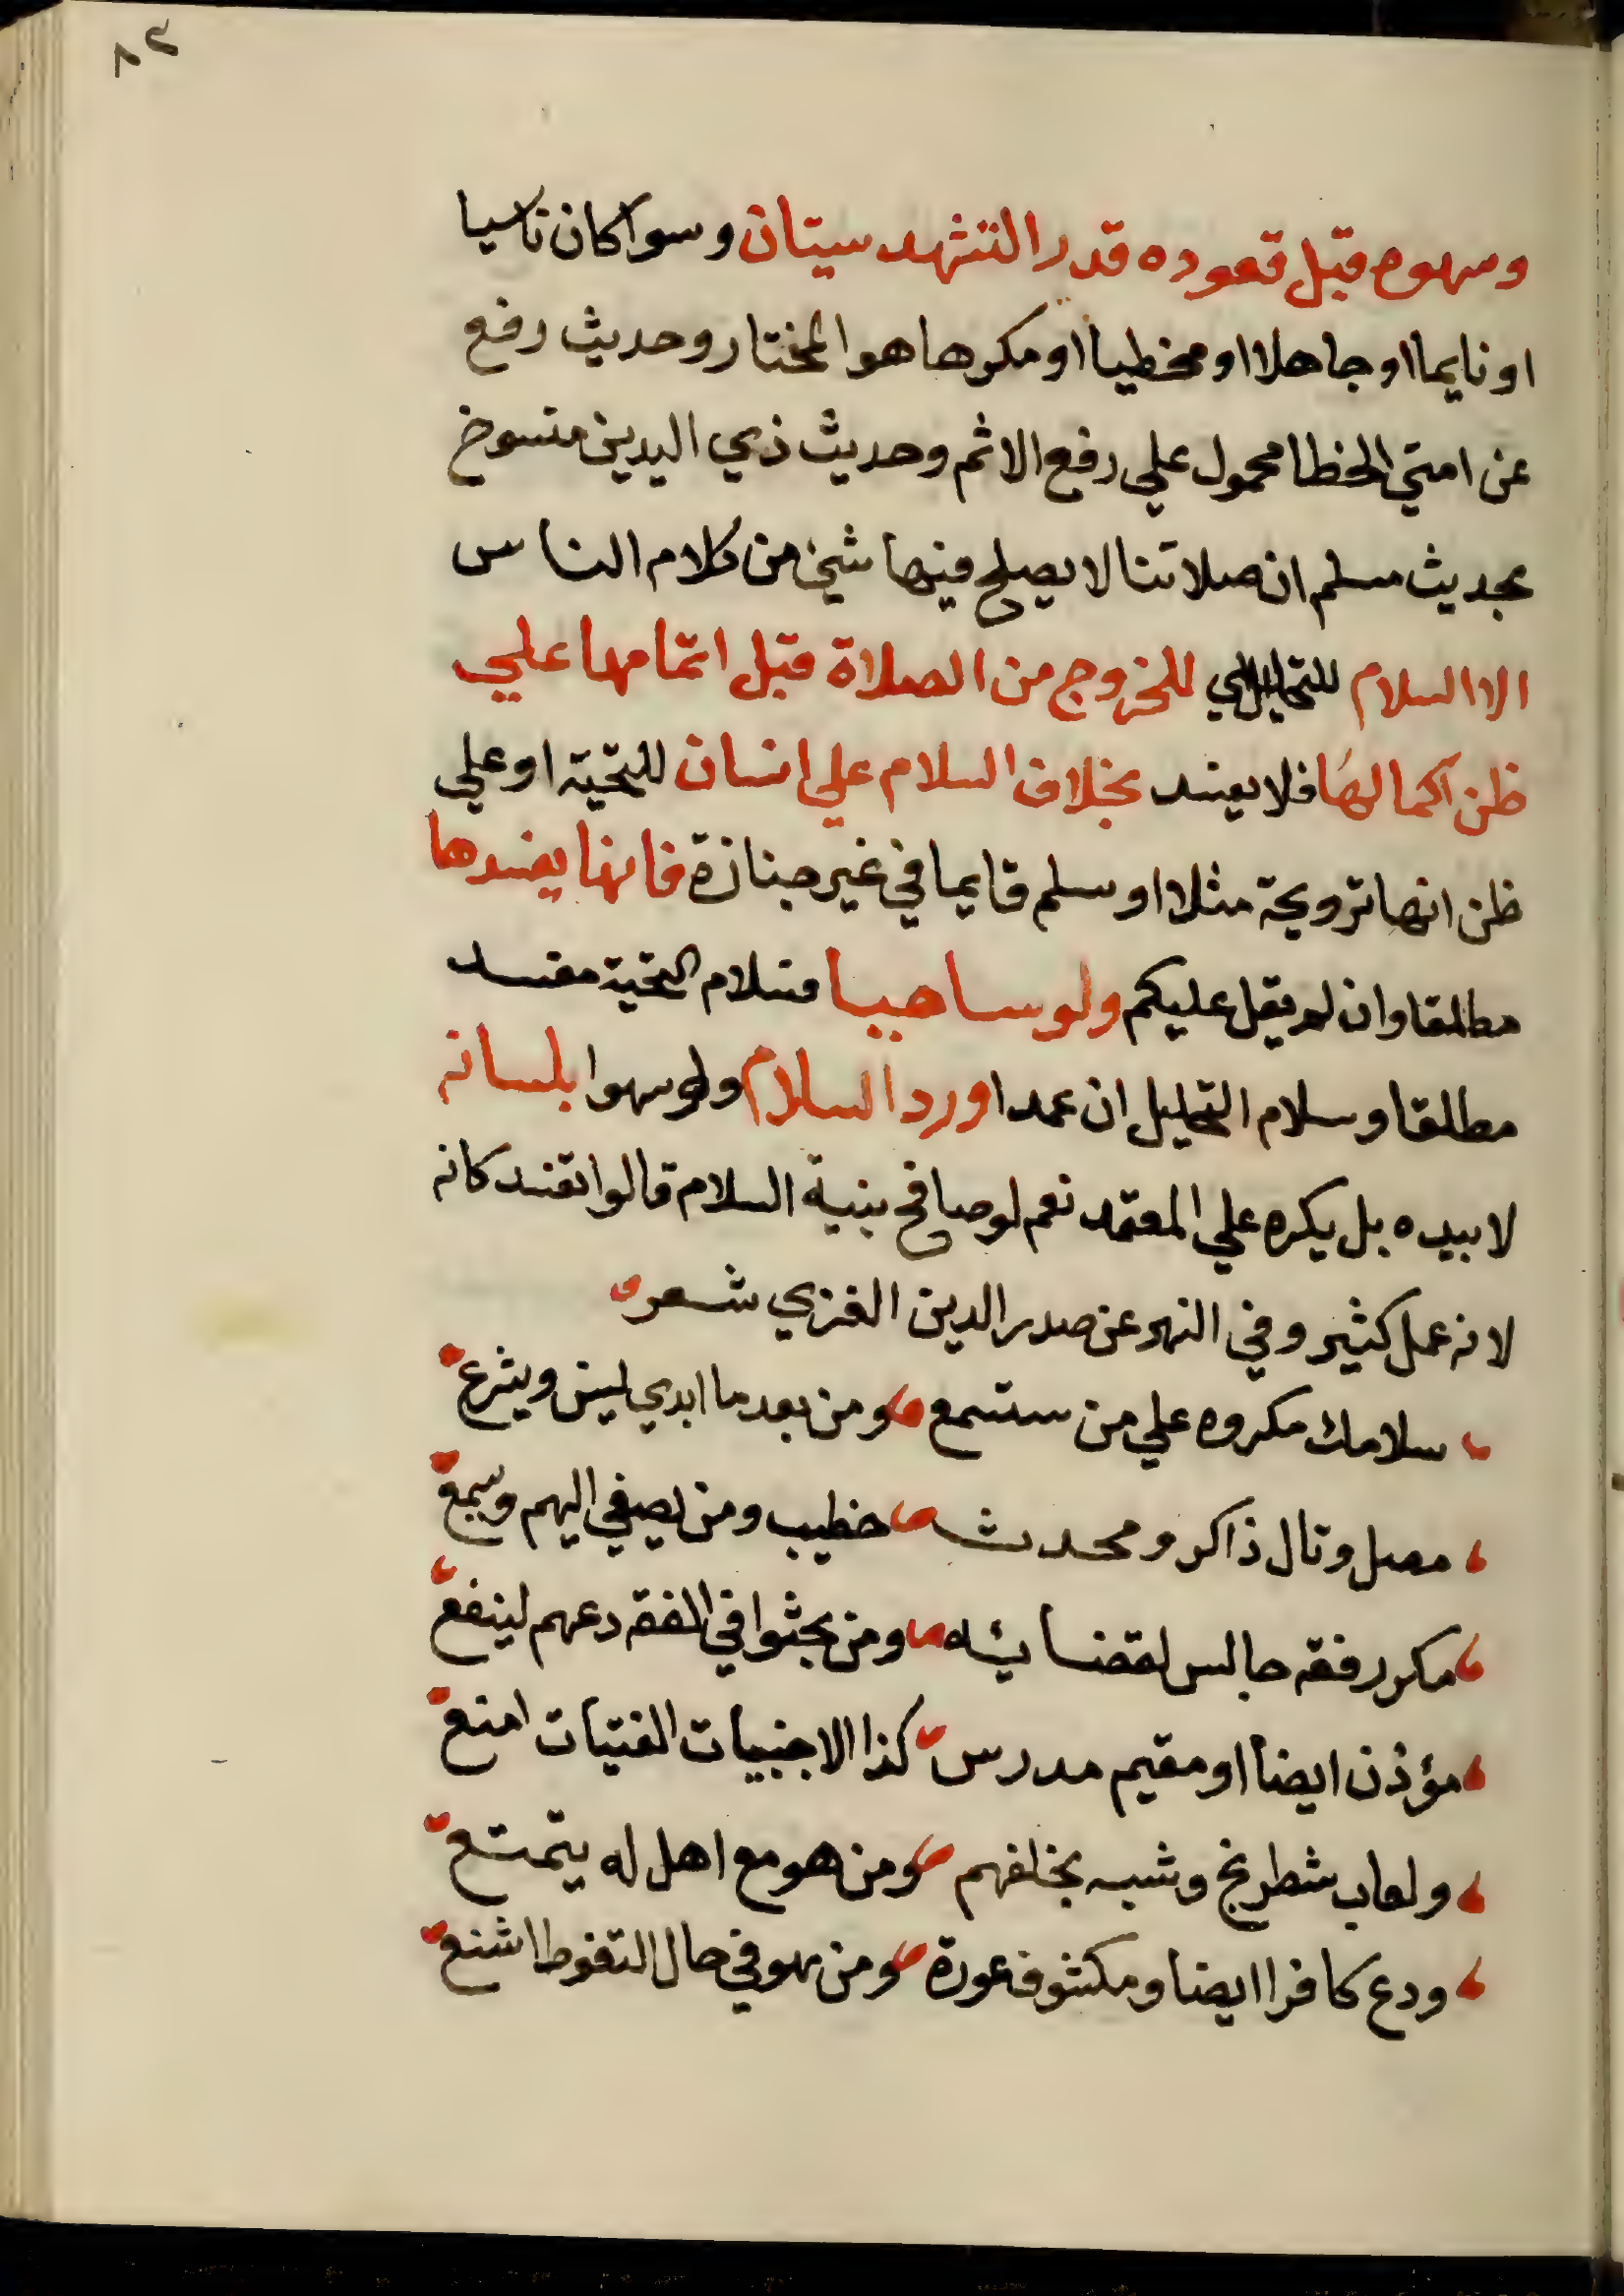 ٨٢
وسهوه قبل قعوده قدر التشهد سيتان وسوا كان ناسيا
او نايما او جاهلا او مخطيا او مكرها هو المختار وحديث رفع
عن امتي الخطا محمول علي رفع الاثم وحديث ذي اليدين منسوخ
بحديث مسلم ان صلاتنا لا يصلح فيها شيئ من كلام الناس
الا السلام للتحليل اي للخروج من الصلاة قبل اتمامها علي
ظن اكمالها فلا يفسد بخلاف السلام علي انسان للتحية او علي
ظن انها ترويحة مثلا او سلم قايما في غير جنازة فانها يفسدها
مطلقا وان لم يقل عليكم ولو ساهيا فسلام التحية مفسد
مطلقا وسلام التحليل ان عمدا ورد السلام ولو سهوا بلسانه
لا بيده بل يكره علي المعتمد نعم لو صافح بنية السلام قالوا تفسد كانه
لانه عمل كثير وفي النهر عن صدر الدين الغزي شعر
سلامك مكروه علي من ستسمع ومن بعد ما ابدي ليسن ويشرع
مصل وتال ذاكر ومحدث خطيب ومن يصغي اليهم وسيمع
مكرر فقه جالس لقضائه ومن بحثوا في الفقه دعهم لينفع
مؤذن ايضا او مقيم مدرس كذا الاجنبيات الفتيات امنع
ولعاب شطرنج وشبه بخلفهم ومن هو مع اهل له يتمتع
ودع كافرا ايضا ومكشوف عورة ومن هو في حال التغوط اشنع